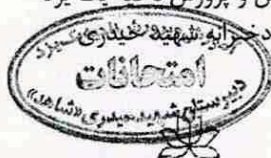 دخترانه شهید حیدری یزد
امتحانات
دبیرستان شهید حیدری «شاهد»